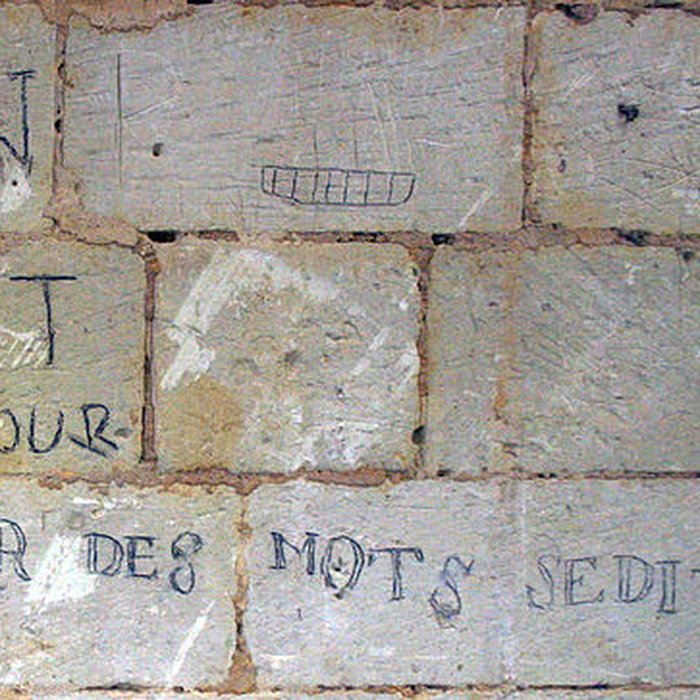 N
T
OUR
R DES MOTS SEDIT